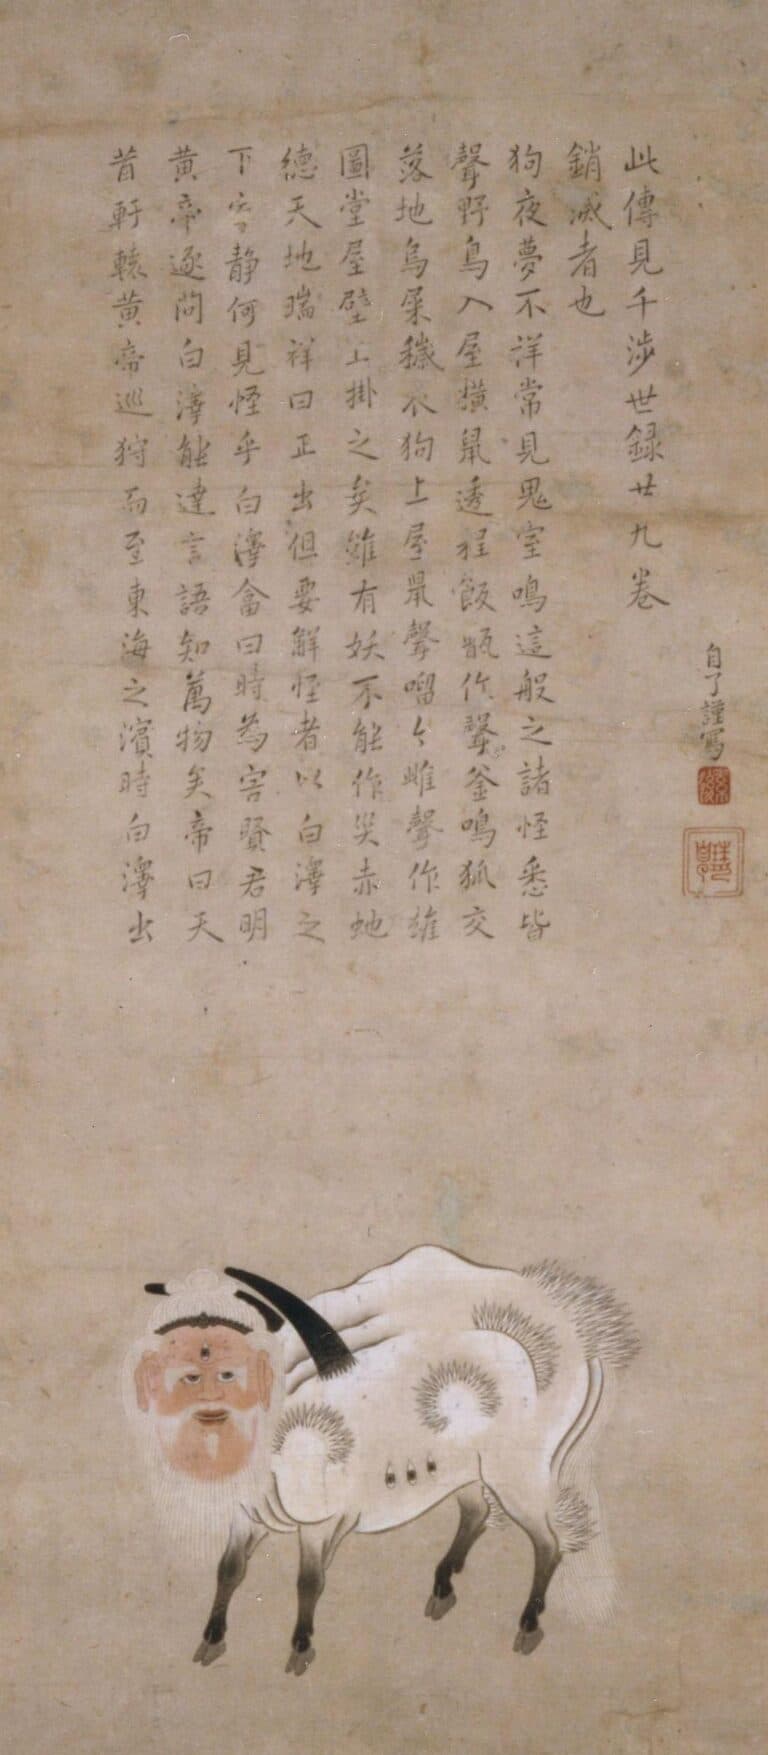 昔軒轅黄帝巡狩而至東海之濱時白澤出
黄帝逐問白澤能達言語知萬物矣帝曰天
下安静何見怪乎白澤畣曰時為害賢君明
德天地瑞祥曰正出但要解怪者以白澤之
圖堂屋壁上掛之矣雖有妖不能作災赤虵
落地烏屎穢衣狗上屋鼠聲々雌聲作雄
聲野鳥入屋横鼠透程飯甑作聲釜鳴狐交
狗夜夢不祥常見鬼室鳴這般之諸怪悉皆
銷滅者也
此傳見千涉世録廿九卷
自了謹寫